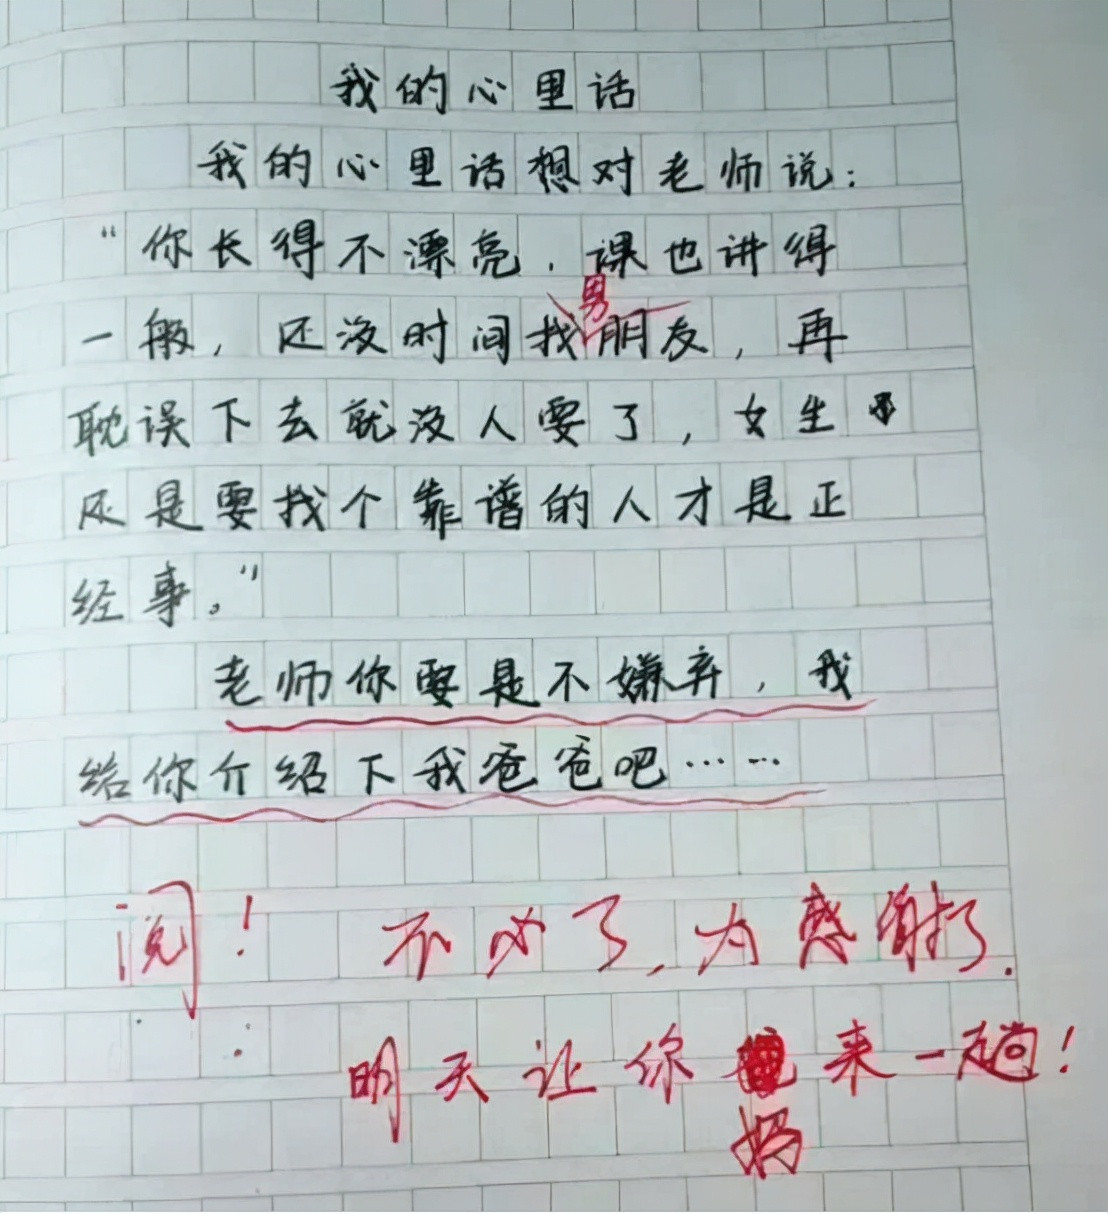 我的心里话
我的心里话想对老师说：
“你长得不漂亮，课也讲得
男
一般，还没时间找朋友，再
耽误下去就没人要了，女生
还是要找个靠谱的人才是正
经事。”
老师你要是不嫌弃，我
给你介绍下我爸爸吧……
阅！ 不必了，为感谢了.
明天让你来一趟！
妈